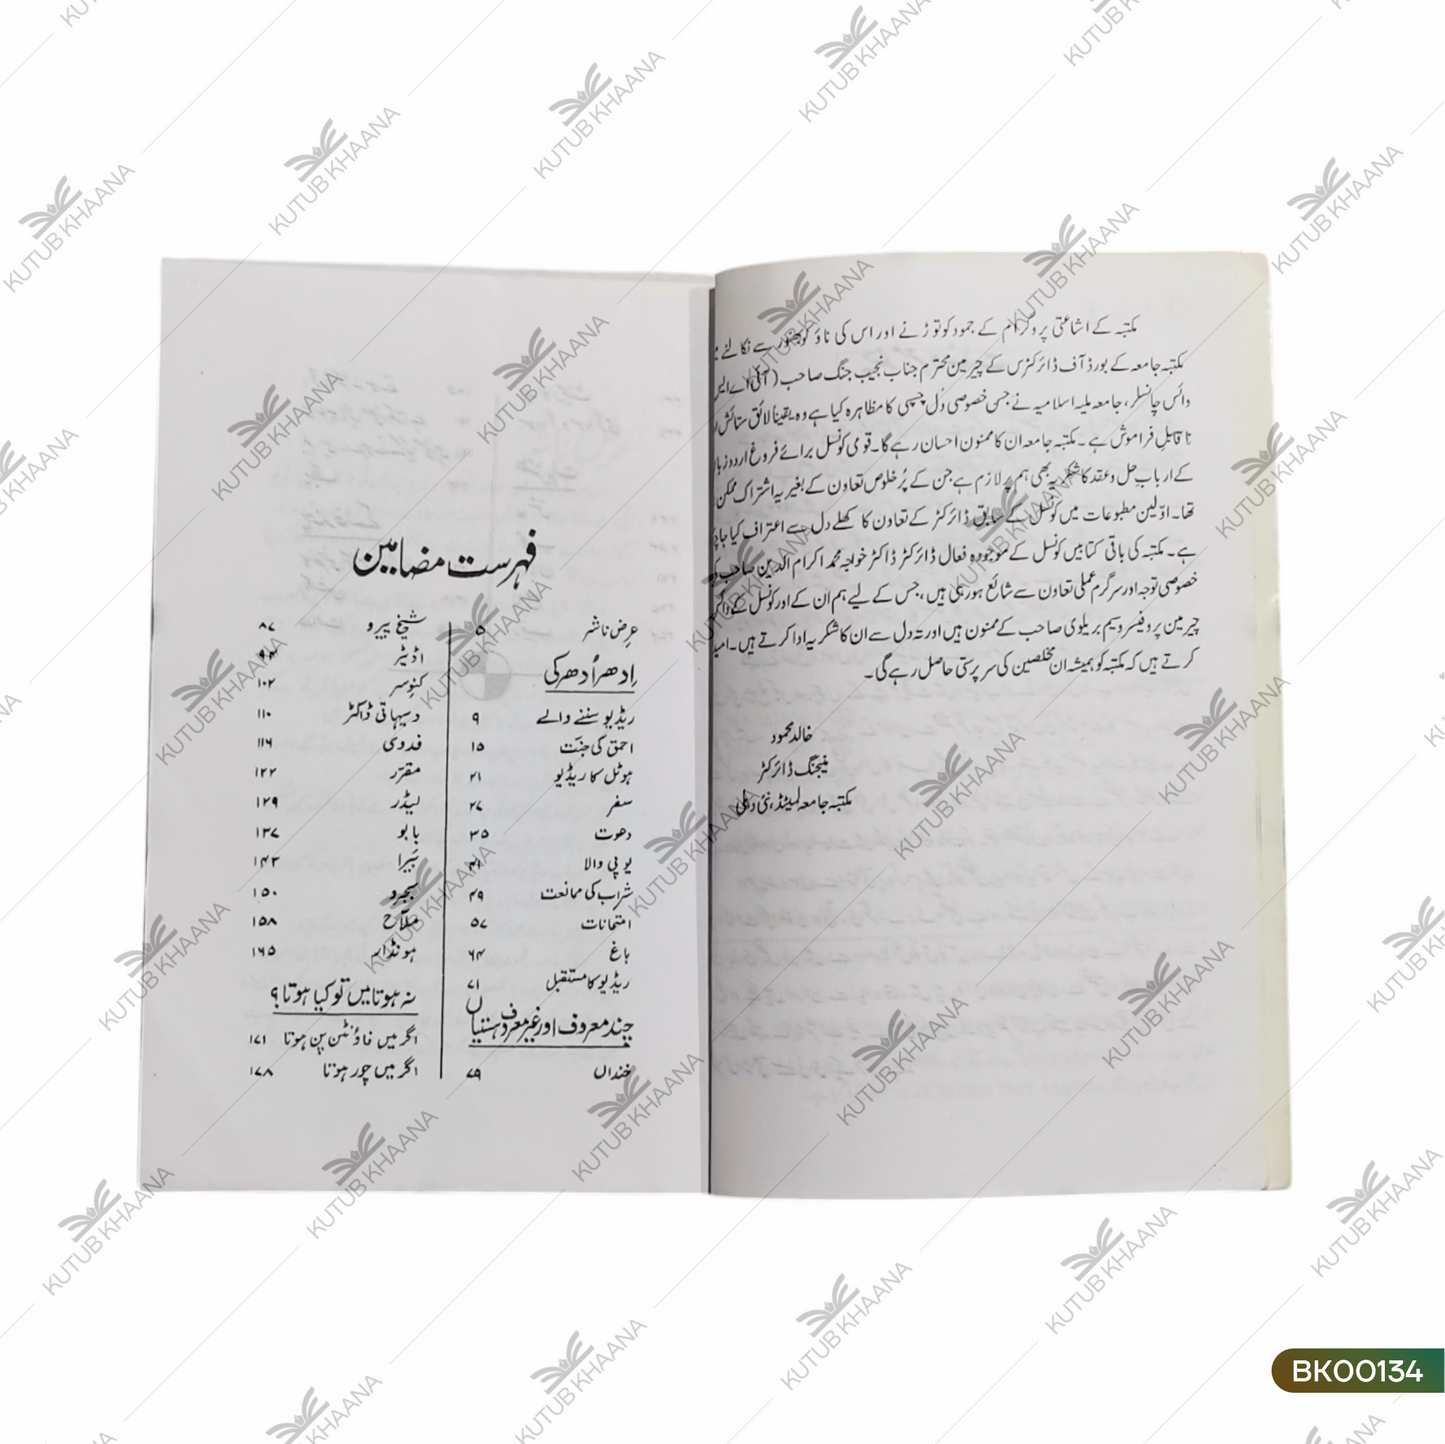 مکتبہ کے اشاعتی پروگرام کے جمود کو توڑنے اور اس کی ناؤ کو بھنور سے نکالنے
مکتبہ جامعہ کے بورڈ آف ڈائرکٹرس کے چیرمین محترم جناب نجیب جنگ صاحب (آئی اے ایس
وائس چانسلر، جامعہ ملیہ اسلامیہ نے جس خصوصی دل چسپی کا مظاہرہ کیا ہے وہ یقیناً لائق ستائش
ناقابلِ فراموش ہے۔ مکتبہ جامعہ ان کا ممنون احسان رہے گا۔ قومی کونسل برائے فروغ اردو
کے ارباب حل و عقد کا شکریہ بھی ہم پر لازم ہے جن کے پُرخلوص تعاون کے بغیر یہ اشتراک ممکن
تھا۔ اوّلین مطبوعات میں کونسل کے سابق ڈائرکٹر کے تعاون کا کھلے دل سے اعتراف کیا
ہے۔ مکتبہ کی باقی کتابیں کونسل کے موجودہ فعال ڈائرکٹر ڈاکٹر خواجہ محمد اکرام الدین صاحب
خصوصی توجہ اور سرگرم عملی تعاون سے شائع ہو رہی ہیں، جس کے لیے ہم ان کے اور کونسل کے
چیرمین پروفیسر وسیم بریلوی صاحب کے ممنون ہیں اور تہ دل سے ان کا شکریہ ادا کرتے ہیں۔
کرتے ہیں کہ مکتبہ کو ہمیشہ ان مخلصین کی سرپرستی حاصل رہے گی۔
خالد محمود
منیجنگ ڈائرکٹر
مکتبہ جامعہ لمیٹڈ، نئی دہلی
فہرست مضامین
عرض ناشر ۵
اِدھر اُدھر کی
ریڈیو سننے والے ۹
احمق کی جنّت ۱۵
ہوٹل کا ریڈیو ۲۱
سفر ۲۷
دھوت ۳۵
یو پی والا ۴۱
شراب کی ممانعت ۴۹
امتحانات ۵۷
باغ ۶۴
ریڈیو کا مستقبل ۷۱
چند معروف اور غیر معروف ہستیاں
خنداں ۷۹
شیخ پیرو ۸۷
اڈیٹر
کنوسر ۱۰۲
دیہاتی ڈاکٹر ۱۱۰
فدوی ۱۱۶
مقرّر ۱۲۲
لیڈر ۱۲۹
بابو ۱۳۷
بَیرا ۱۴۳
ہیجرو ۱۵۰
ملّاح ۱۵۸
ہونڈار ۱۶۵
نہ ہوتا میں تو کیا ہوتا؟
اگر میں فاؤنٹن پن ہوتا ۱۷۱
اگر میں چور ہوتا ۱۷۸
KUTUB KHAANA
BK00134